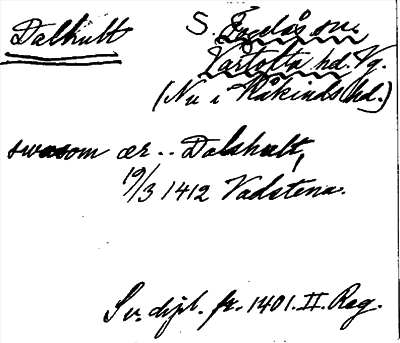 Dalhult
S. Fredås sn.
Vartofta hd. Vg.
(Nu i Kåkinds hd.)
swasom ær .. Dalshult,
19/3 1412 Vadstena.
Sv. dipl. fr. 1401. II. Reg.